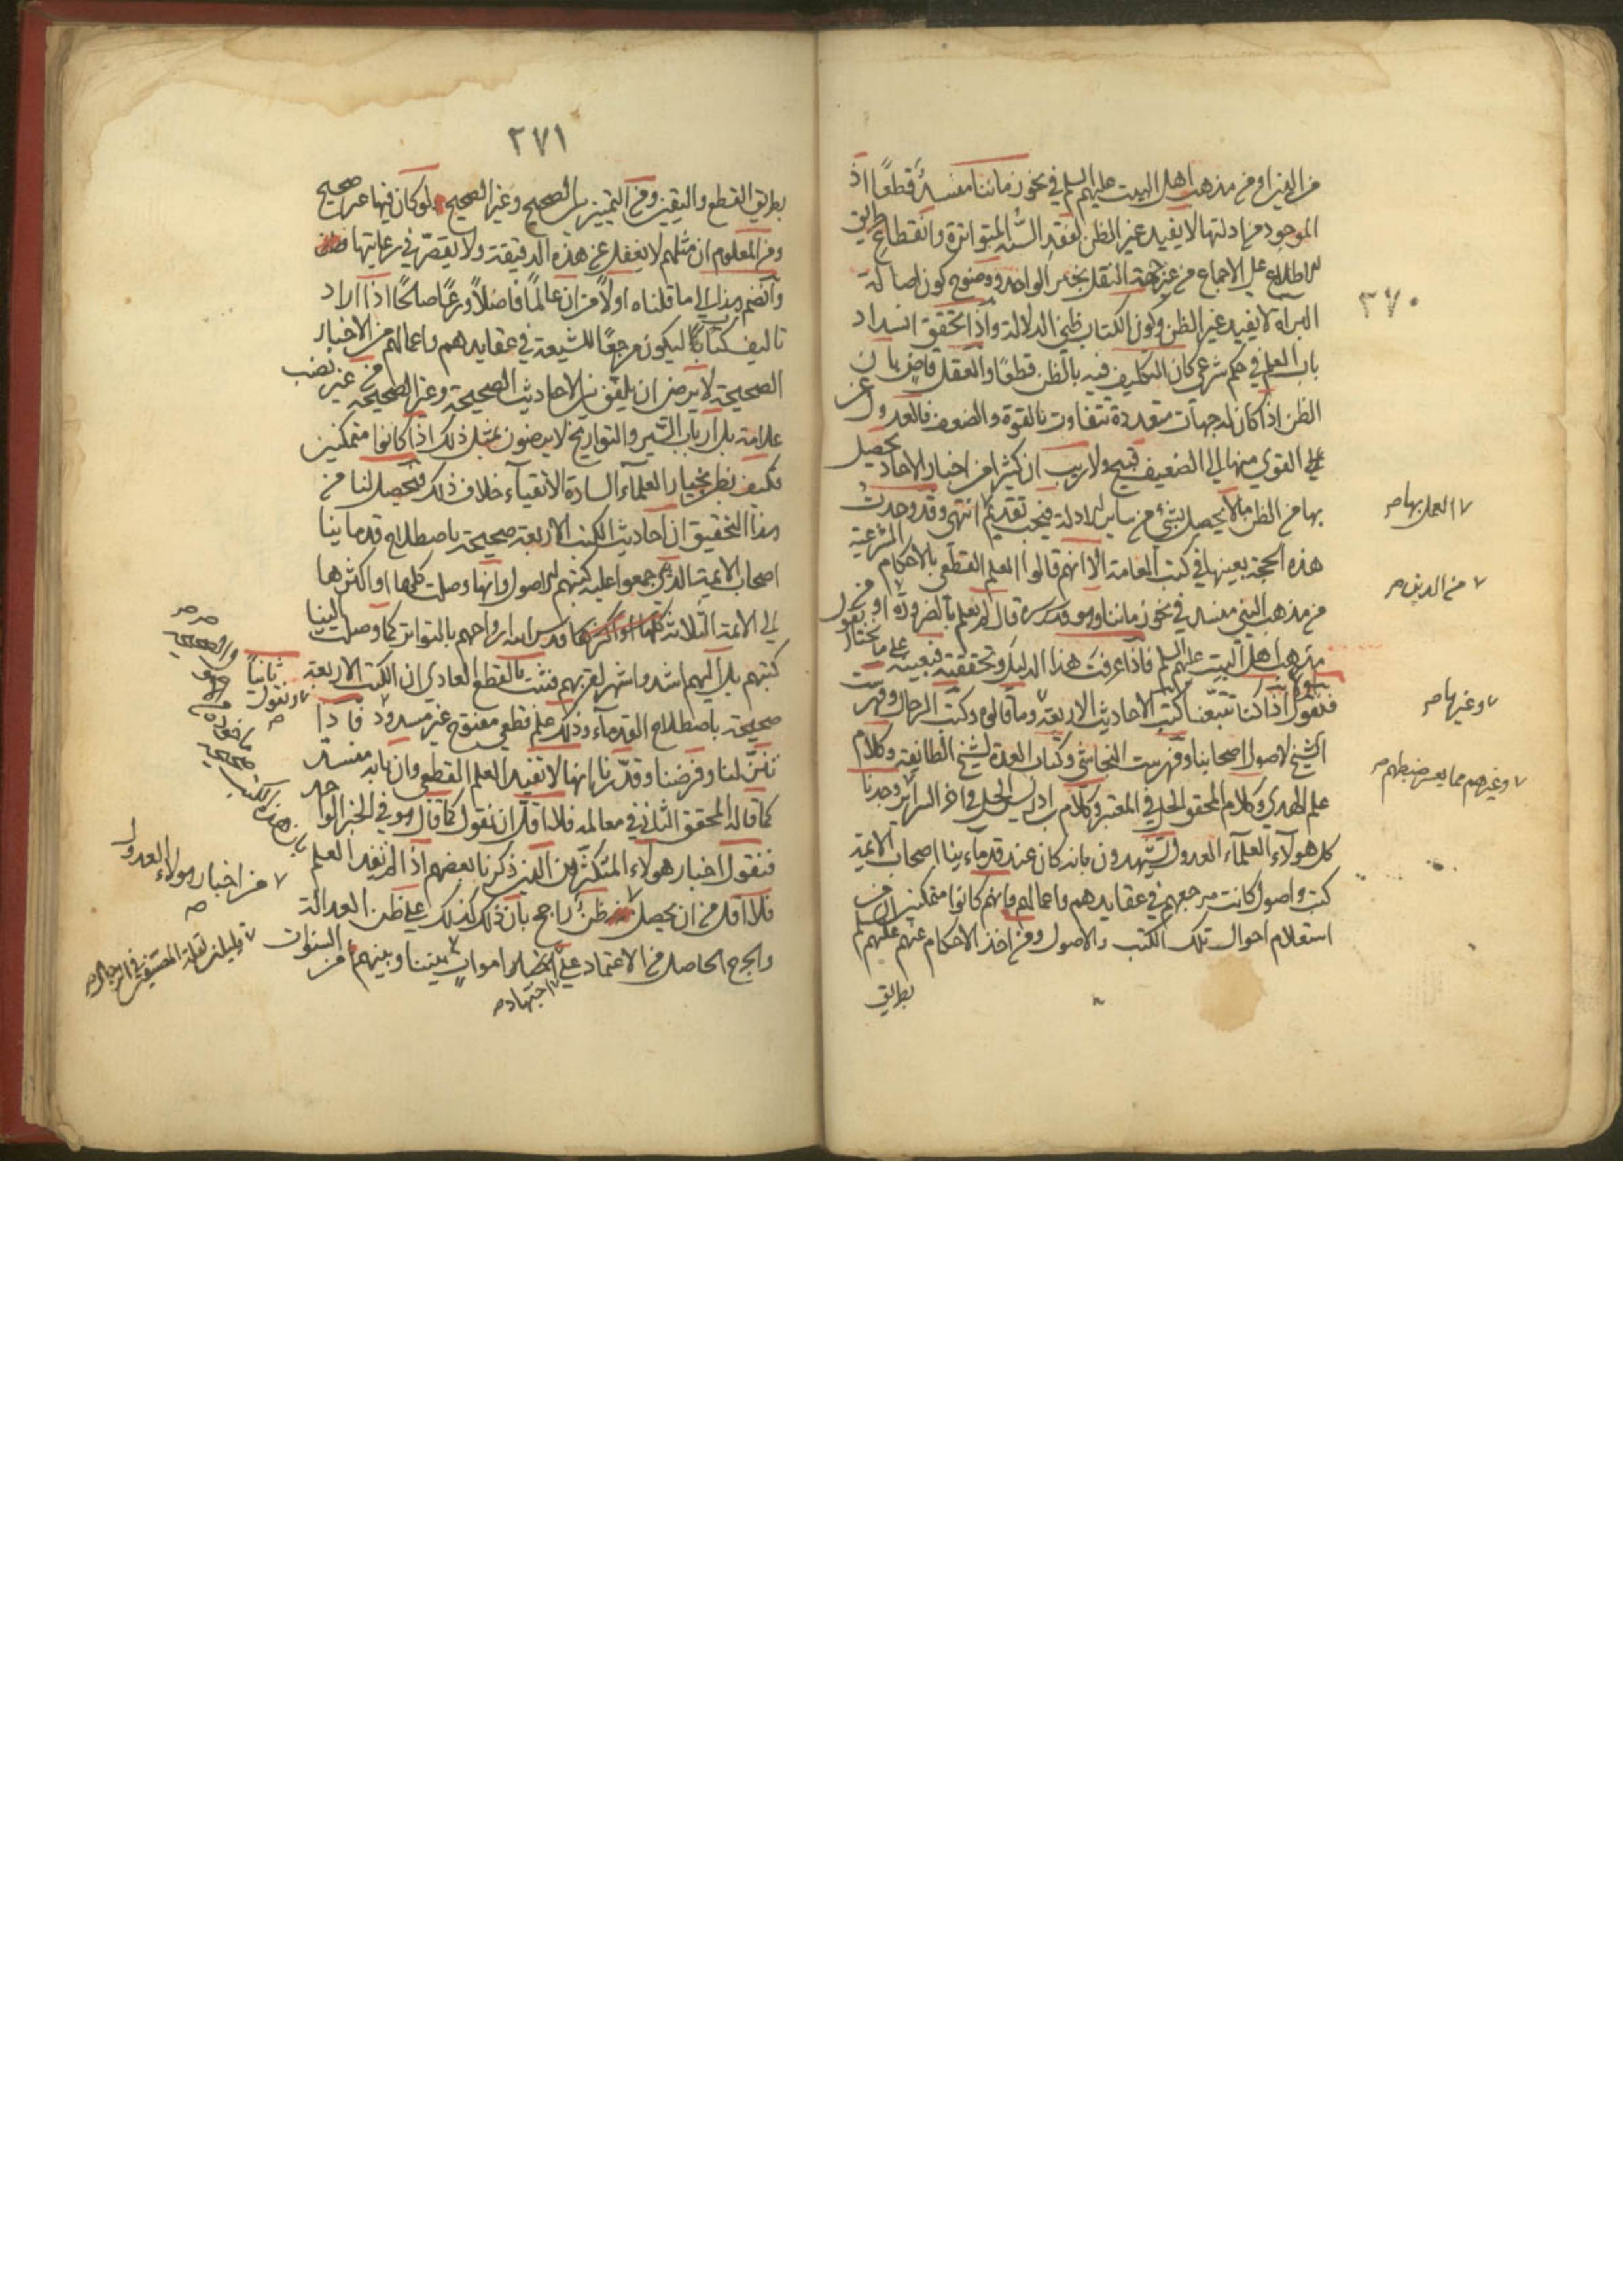 ٣٧٠
من الدين او من مذهب اهل البيت عليهم السلم في نحو زماننا منسدّ قطعًا اذ
الموجود من ادلتها لا يفيد غير الظن لفقد السنّة المتواترة وانقطاع طريق
الاطلاع على الاجماع من غير جهة النقل بخبر الواحد ووضوح كون اصالة
البراة لا يفيد غير الظن وكون الكتاب ظني الدلالة واذا تحقق انسداد
باب العلم في حكم شرعي كان التكليف فيه بالظن قطعًا والعقل قاض بان
الظن اذا كان له جهات متعددة تتفاوت بالقوة والضعف فالعدول عن
القوي منها الى الضعيف قبيح ولا ريب ان كثيرا من اخبار الاحاد يحصل
بها من الظن ما لا يحصل بشئ من ساير الادلة فيجب تقديم انتهى وقد وجدت
٧ العمل بها صح
هذه الحجة بعينها في كتب العامة الا انهم قالوا العلم القطعي بالاحكام الشرعية
٧ من الدين صح
من مذهب النبي منسد في نحو زماننا وهو قدس سره قال لم يعلم بالضرورة او من
مذهب اهل البيت عليهم السلم فاذا عرفت هذا الدليل وتحققته فبعينه نقول على ما نختار
فنقول اولا اذا كنا تتبعنا كتب الاحاديث الاربعة وما قالوه وكتب الرجال وفهرست
٧ وغيرها صح
الشيخ لاصول اصحابنا وفهرست النجاشي وكتاب العدة لشيخ الطايفة وكلام
علم الهدى وكلام المحقق الحلي في المعتبر وكلام ابن ادريس الحلي في اخر السراير وجدنا
٧ وغيرهم مما يعسر ضبطهم صح
كل هولآء العلمآء العدول يشهدون بانه كان عند قدمآء ينا اصحاب الائمة
كتب واصول كانت مرجعهم في عقايدهم واعمالهم وانهم كانوا متمكنين من
استعلام احوال تلك الكتب والاصول ومن اخذ الاحكام عنهم عليهم السلم
بطريق
٢٧١
بطريق القطع واليقين ومن التمييز بين الصحيح وغير الصحيح لو كان فيها غير صحيح
ومن المعلوم ان مثلهم لا يغفل عن هذه الدقيقة ولا يقصر في رعايتها
وانضم هذا الى ما قلناه اولًا من ان عالمًا فاضلًا ورعًا صالحًا اذا اراد
تاليف كتاب ليكون مرجعًا للشيعة في عقايدهم واعمالهم من الاخبار
الصحيحة لا يرضى ان يلفق بين الاحاديث الصحيحة وغير الصحيحة من غير نصب
علامة بل ارباب السير والتواريخ لا يرضون بمثل ذلك اذا كانوا متمكنين
فكيف يظن بخيار العلمآء السادة الاتقيآء خلاف ذلك فتحصل لنا من
هذا التحقيق ان احاديث الكتب الاربعة صحيحة باصطلاح قدماينا
اصحاب الائمة الذين جمعوا عليه كتبهم الاصول وانها وصلت كلها او اكثرها
الى الائمة الثلاثة قدس الله ارواحهم بالتواتر كما وصلت الينا
كتبهم بل اليهم اشد واشهر لقربهم فثبت بالقطع العادي ان الكتب الاربعة
صحيحة باصطلاح القدمآء وذلك علم قطعي مفتوح غير مسدود فاذا
ثانيًا
٧ ونقول
صح
تنزلنا وفرضنا وقدرنا بانها لا تفيد العلم القطعي وان بابه منسدّ
كما قاله المحقق الثاني في معالمه فلا اقل ان نقول كما قال هو في الخبر الواحد
فنقول اخبار هولاء المتكثرون الذين ذكرنا بعضهم اذا لم يفد العلم
بان هذه الكتب
صحيحة
ماخوذة من
فلا اقل من ان يحصل ظن راجح بان ذلك كذلك على ظن العدالة
٧ من اخبار هولاء العدول
صح
والجرح الحاصل من الاعتماد على اموات بيننا وبينهم من السنوات
٧ اجتهاد صح